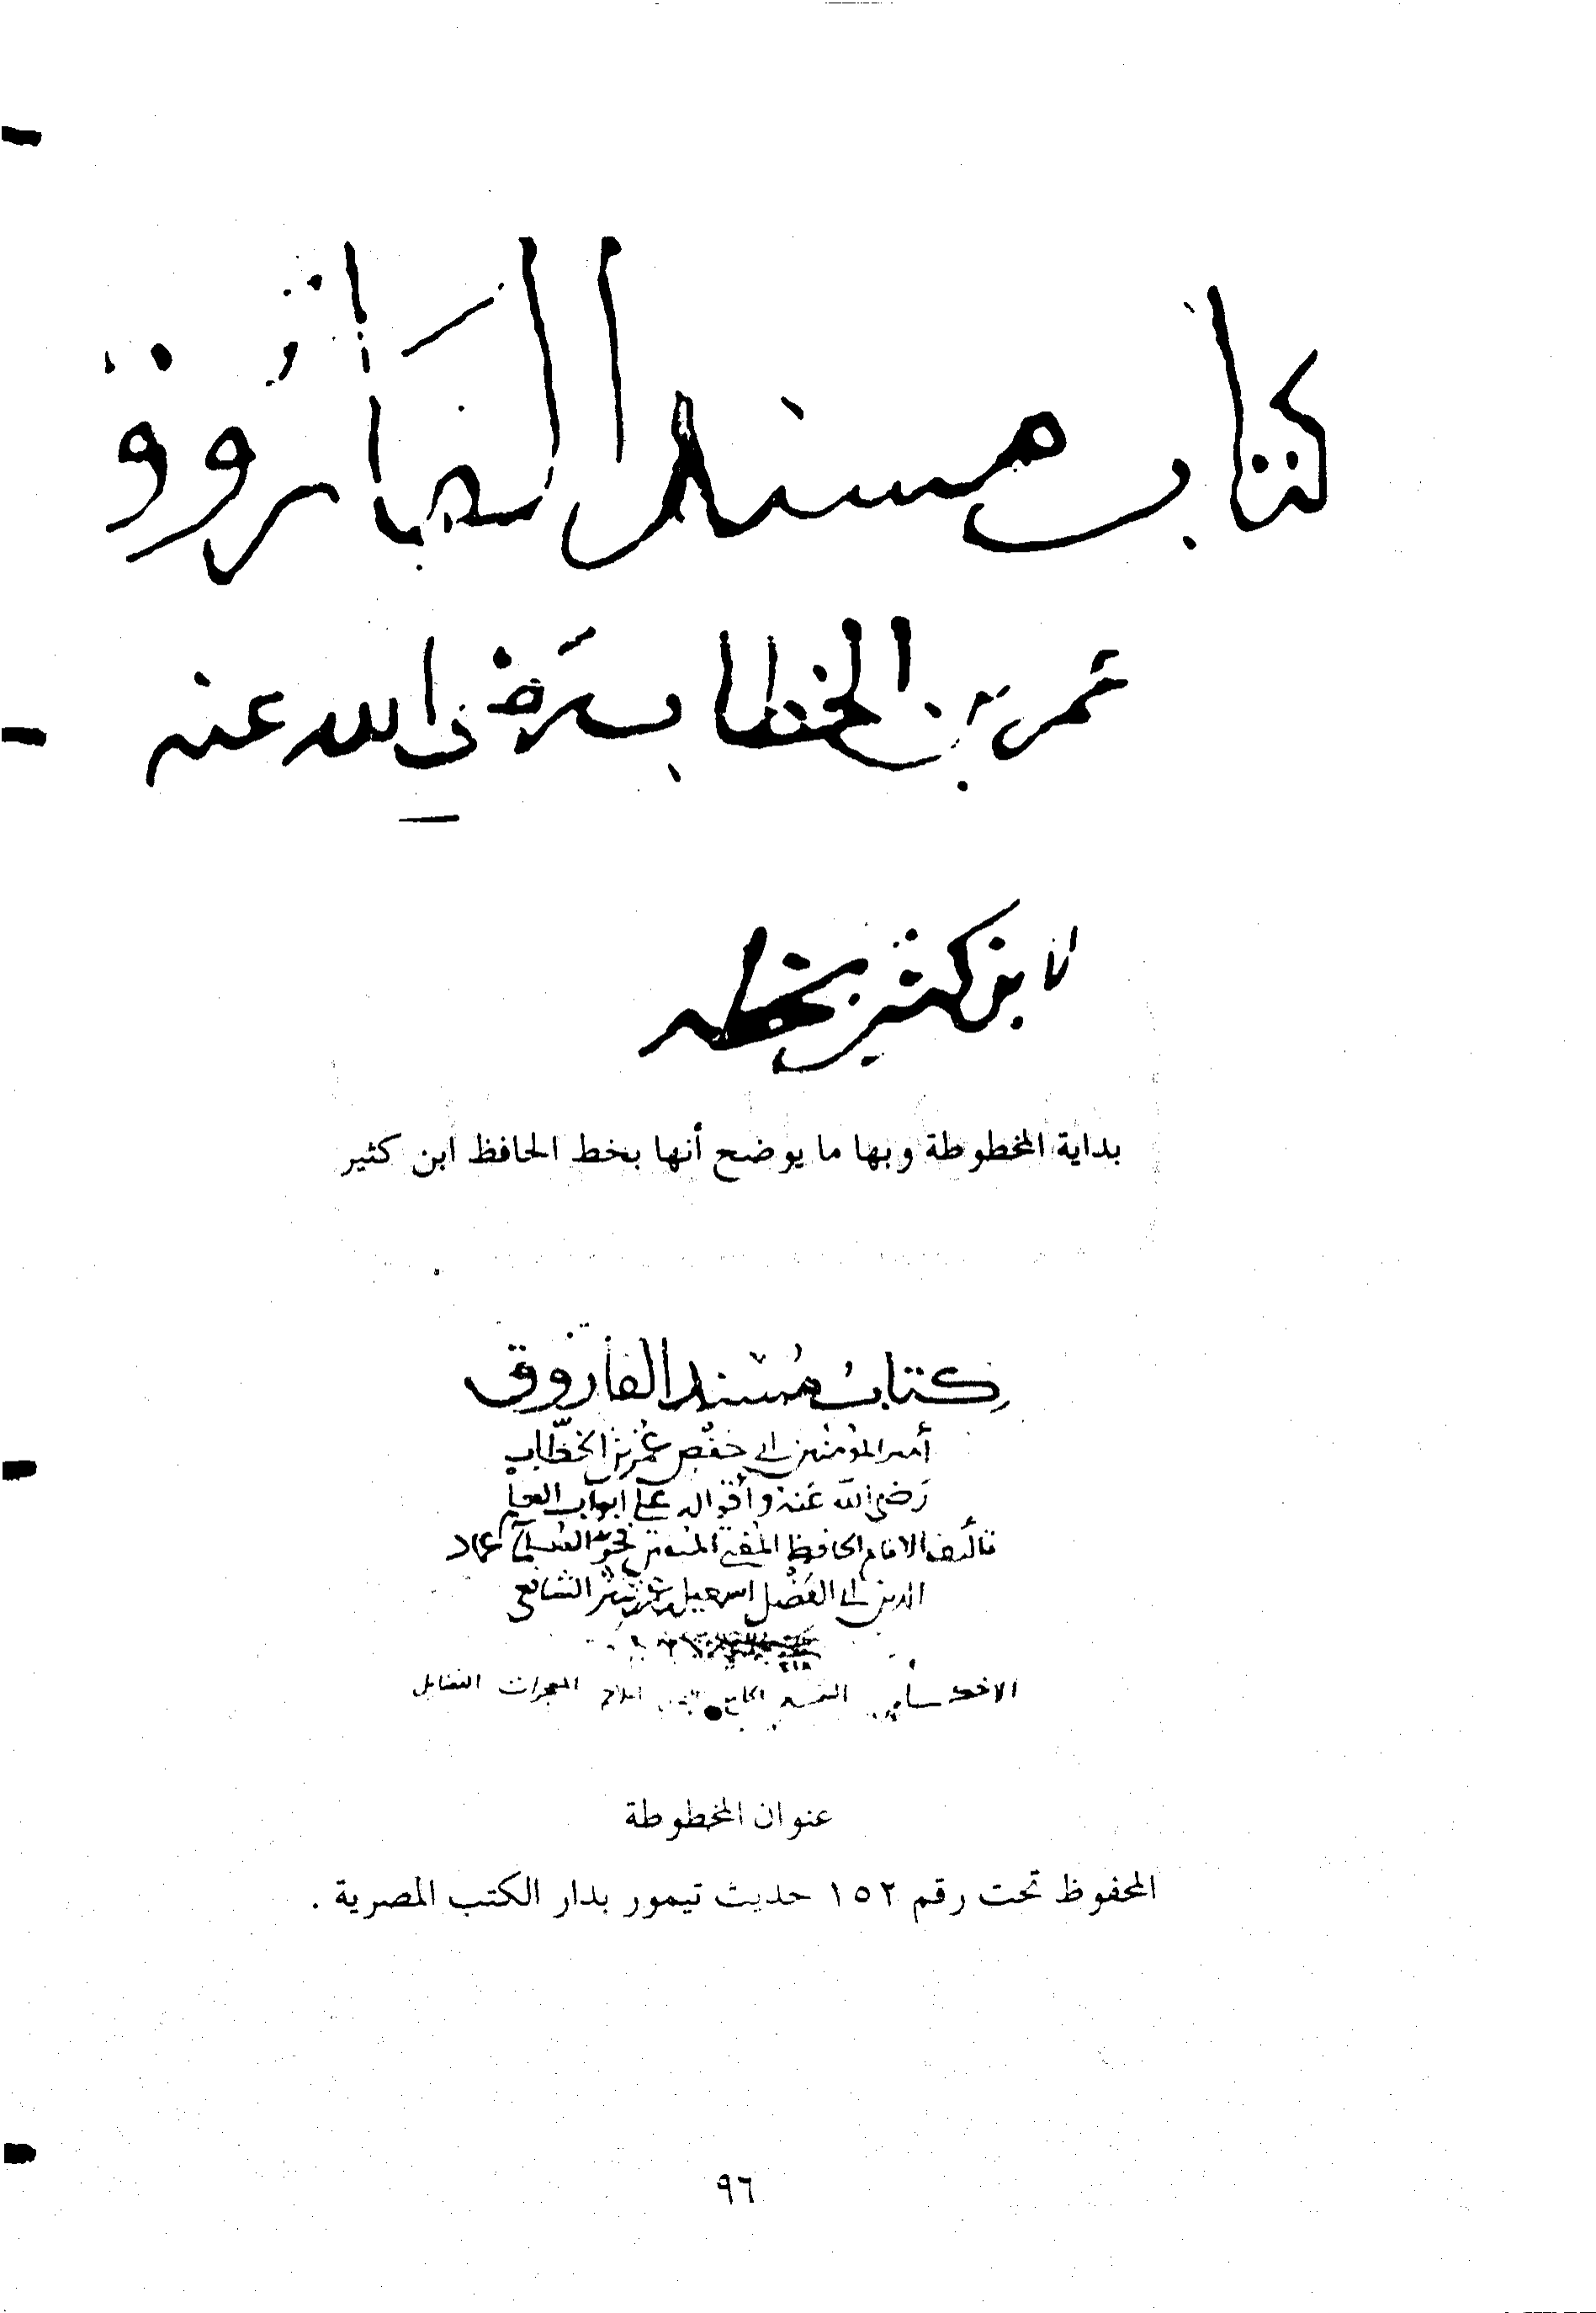 كتاب مسند الفاروق
عمر بن الخطاب رضي الله عنه
لابن كثير بخطه
بداية المخطوطة وبها ما يوضح أنها بخط الحافظ ابن كثير
كتاب مُسْند الفاروق
أمير المؤمنين ابي حفص عُمَر بن الخطّاب
رَضي الله عَنهُ وأقواله على ابواب العلم
تأليف الامام الحافظ المفتي عماد
الدين ابي الفَضْل اسمعيل بن كثير الشافعي
عنوان المخطوطة
المحفوظ تحت رقم ١٥٢ حديث تيمور بدار الكتب المصرية .
٩٦